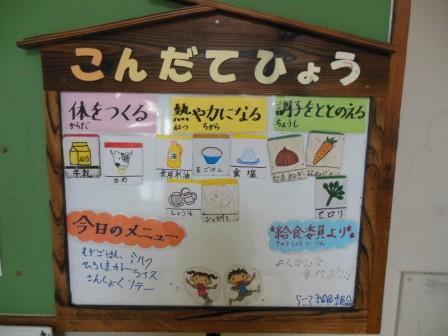 こんだてひょう
体をつくる
からだ
熱や力になる
ねつ ちから
調子をととのえる
ちょうし
牛乳
食用米油
麦ごはん
食塩
たまねぎ
しょうゆ
セロリ
今日のメニュー
給食委員より
きゅうしょくいいん
むぎごはん、ミルク
ひろしまカレーライス
さんしょくソテー
よくかんで